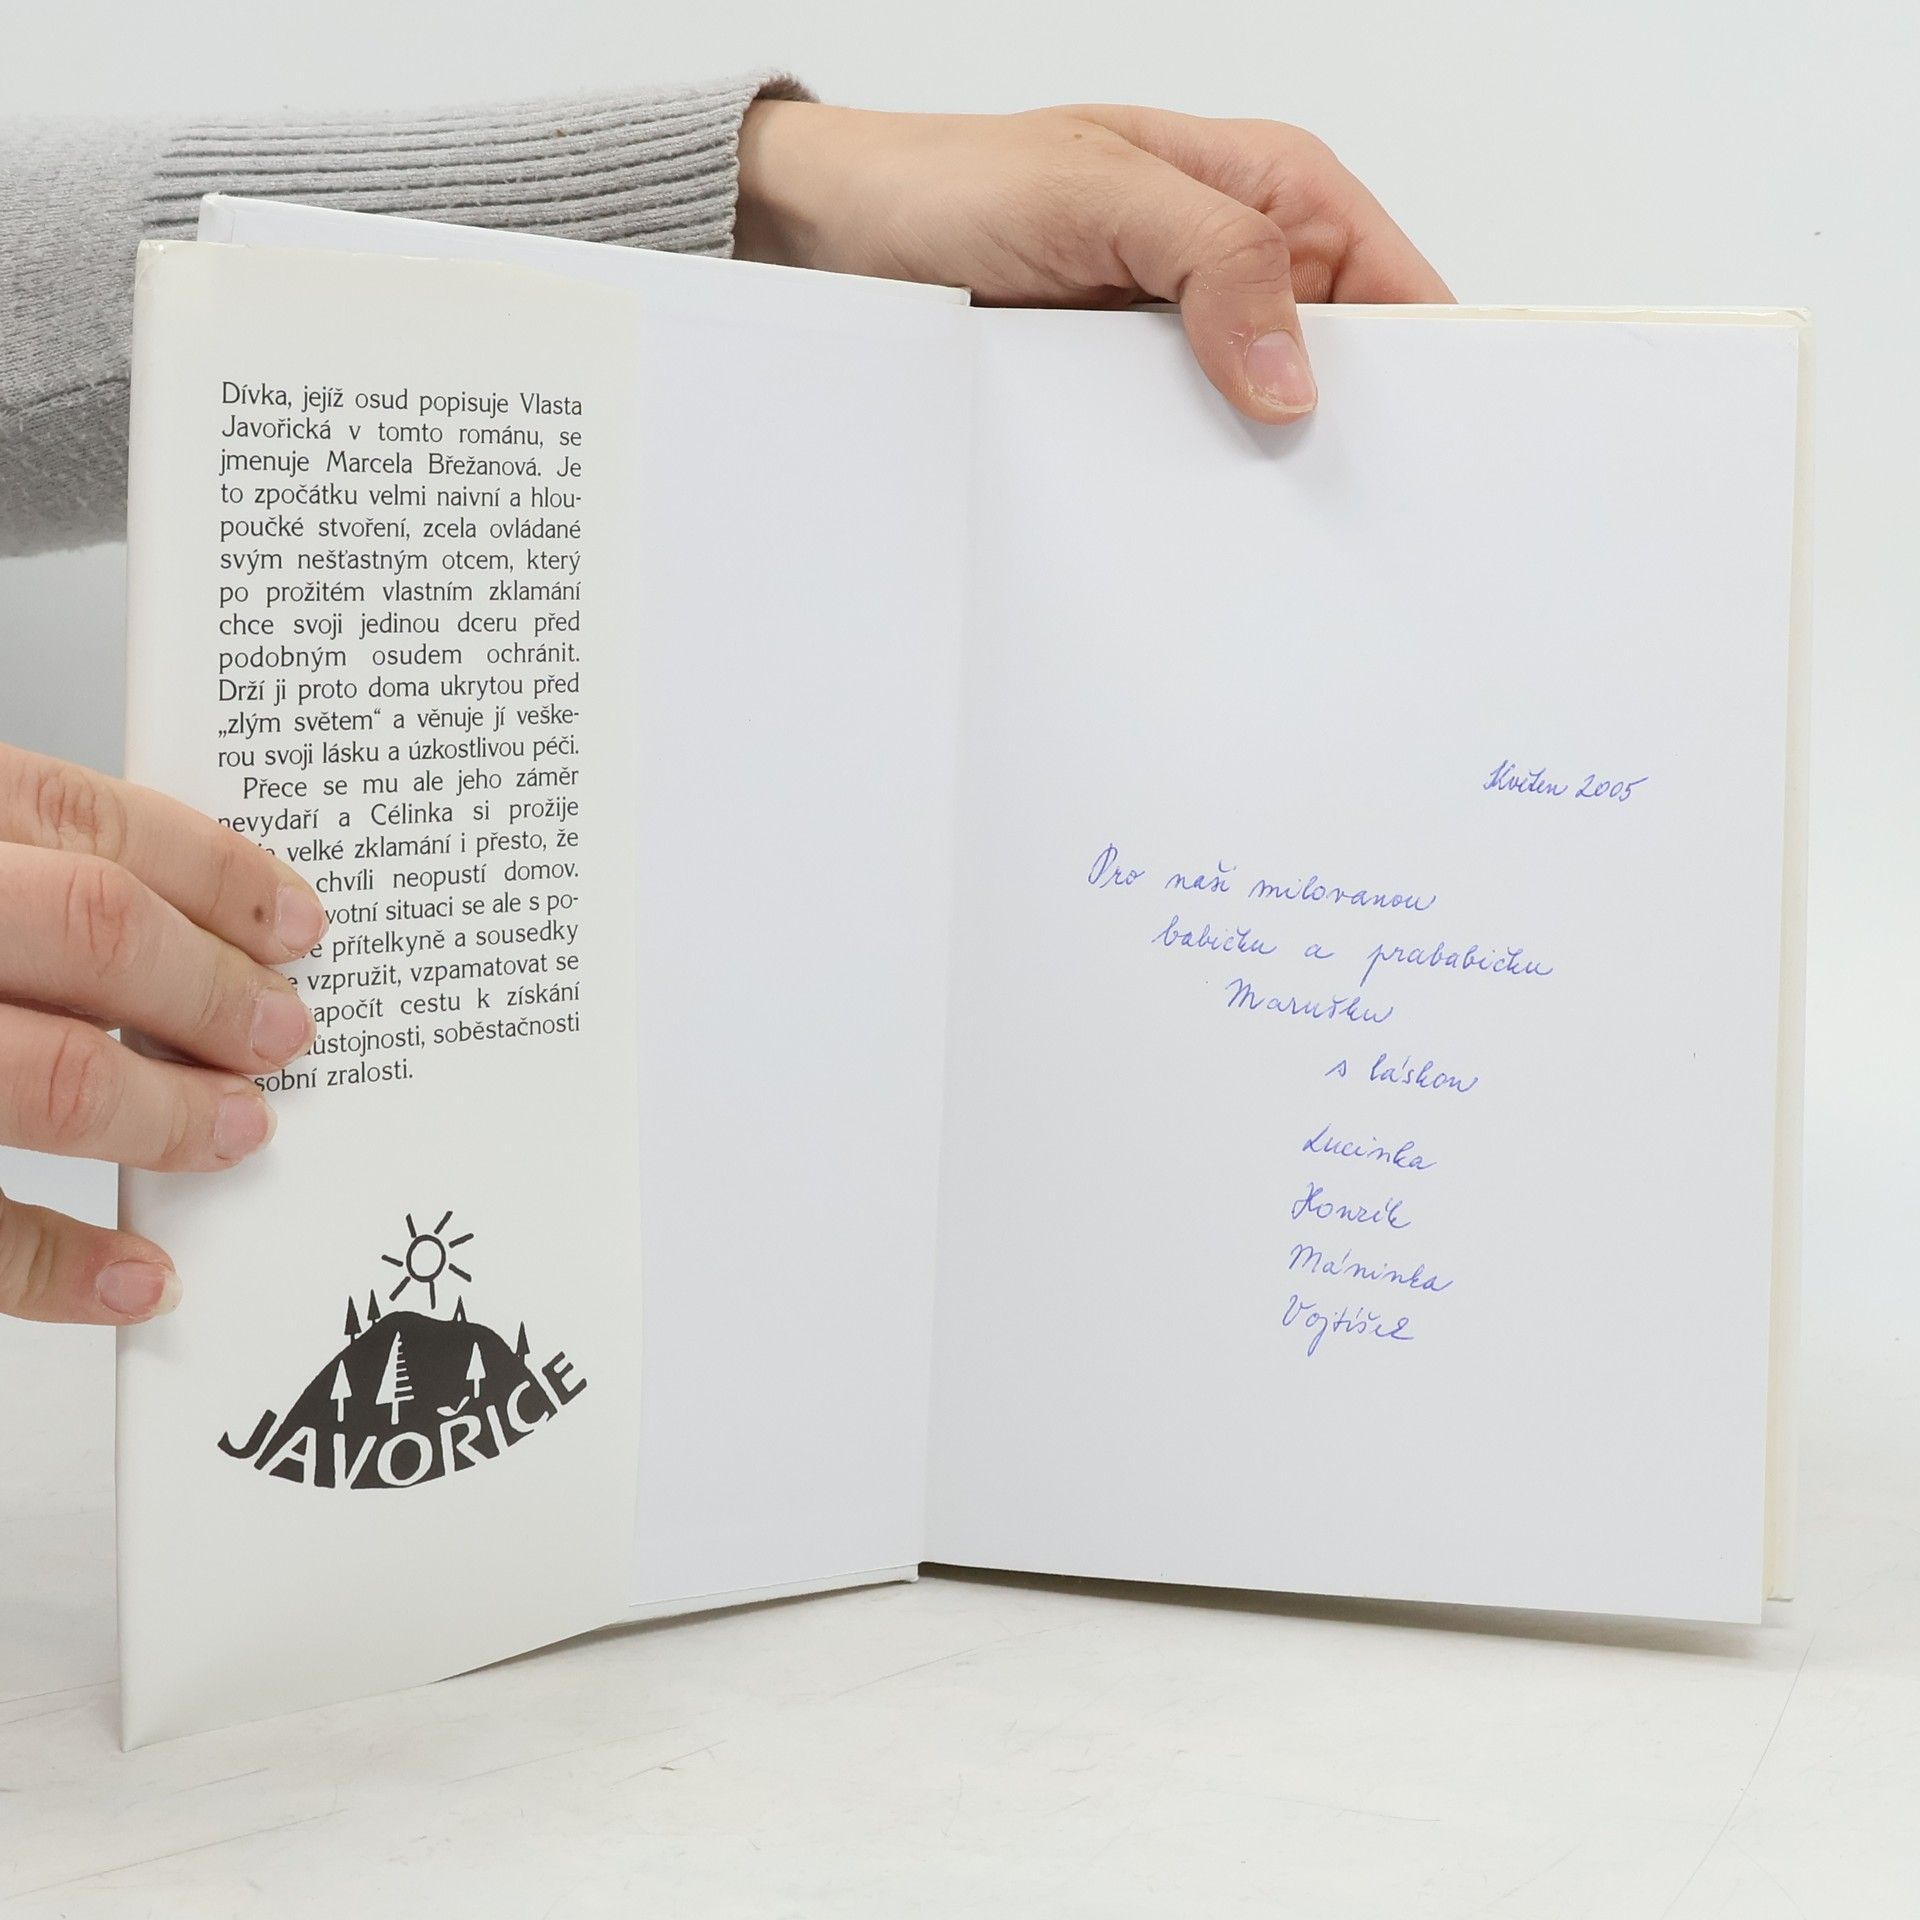 Dívka, jejíž osud popisuje Vlasta
Javořická v tomto románu, se
jmenuje Marcela Břežanová. Je
to zpočátku velmi naivní a hlou-
poučké stvoření, zcela ovládané
svým nešťastným otcem, který
po prožitém vlastním zklamání
chce svoji jedinou dceru před
podobným osudem ochránit.
Drží ji proto doma ukrytou před
„zlým světem“ a věnuje jí veške-
rou svoji lásku a úzkostlivou péči.
Přece se mu ale jeho záměr
nevydaří a Célinka si prožije
velké zklamání i přesto, že
chvíli neopustí domov.
votní situaci se ale s po-
přítelkyně a sousedky
vzpružit, vzpamatovat se
apočít cestu k získání
ůstojnosti, soběstačnosti
sobní zralosti.
JAVOŘICE
Květen 2005
Pro naši milovanou
babičku a prababičku
Marušku
s láskou
Lucinka
Honzík
Máninka
Vojtíšek